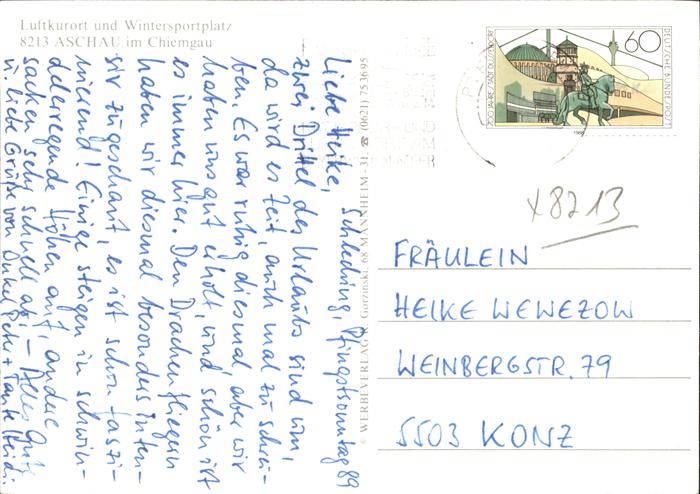 Luftkurort und Wintersportplatz
8213 ASCHAU im Chiemgau
Schleching, Pfingstsonntag 89
Liebe Heike,
zwei Drittel des Urlaubs sind um,
da wird es Zeit, auch mal zu schrei-
ben. Es war ruhig diesmal, aber wir
haben uns gut erholt, und schön ist
es immer hier. Den Drachenfliegern
haben wir diesmal besonders inten-
siv zugeschaut, es ist schon faszi-
nierend! Einige steigen in schwin-
delerregende Höhen auf, andere
sacken sehr schnell ab. – Alles Gute
u. liebe Grüße von Onkel Pehr + Tante Heidi.
© WERBEVERLAG R. Gorzinski, 68 MANNHEIM-31, ☎ (0621) 753695
60
DEUTSCHE BUNDESPOST
700 JAHRE STADT DÜSSELDORF
1988
x8213
FRÄULEIN
HEIKE WEWEZOW
WEINBERGSTR. 79
5503 KONZ